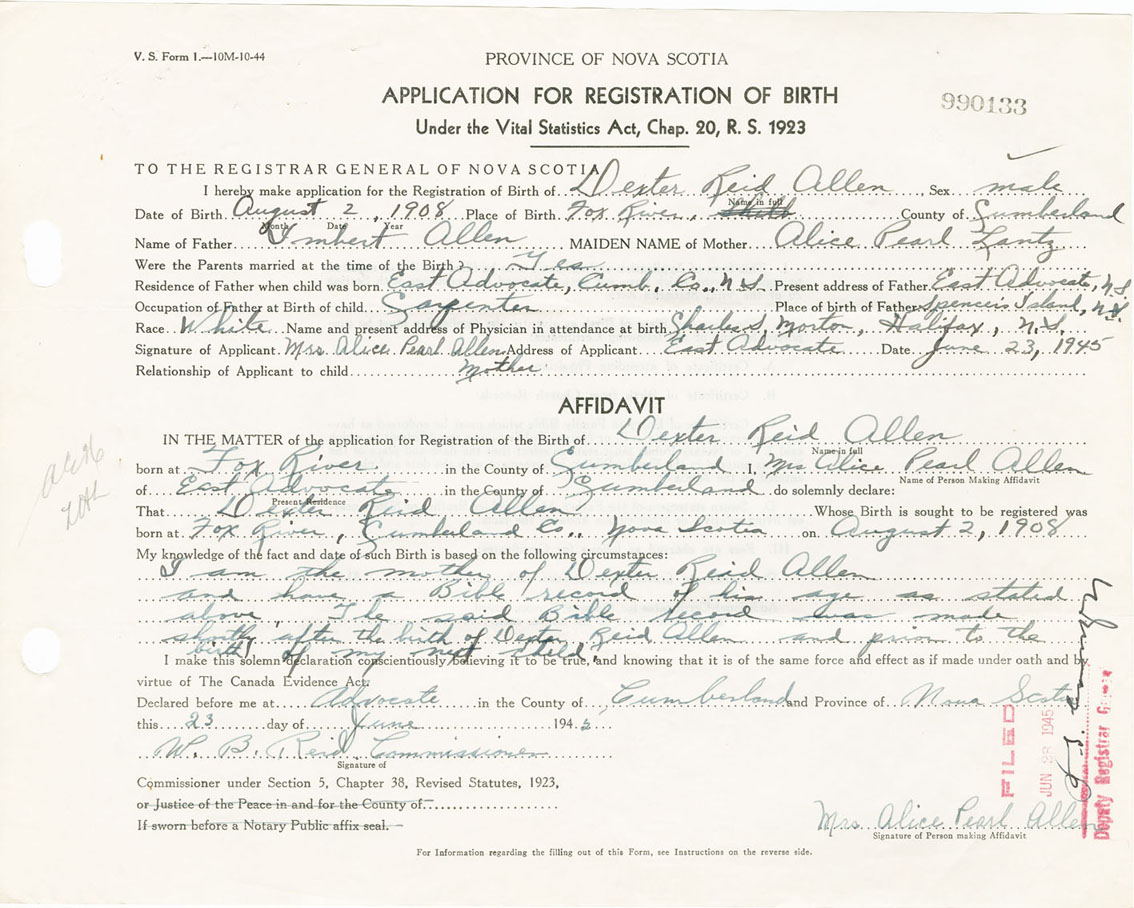 V. S. Form 1.—10M-10-44
PROVINCE OF NOVA SCOTIA
APPLICATION FOR REGISTRATION OF BIRTH
990133
Under the Vital Statistics Act, Chap. 20, R. S. 1923
TO THE REGISTRAR GENERAL OF NOVA SCOTIA
I hereby make application for the Registration of Birth of Dexter Reid Allen Sex male
Name in full
Date of Birth August 2, 1908 Place of Birth Fox River, County of Cumberland
Month Date Year
Name of Father Imbert Allen MAIDEN NAME of Mother Alice Pearl Lantz
Were the Parents married at the time of the Birth? Yes
Residence of Father when child was born East Advocate, Cumb. Co., N.S. Present address of Father East Advocate, N.S.
Occupation of Father at Birth of child Carpenter Place of birth of Father Spencer's Island, N.S.
Race White Name and present address of Physician in attendance at birth Charles S. Morton, Halifax, N.S.
Signature of Applicant Mrs Alice Pearl Allen Address of Applicant East Advocate Date June 23, 1945
Relationship of Applicant to child Mother
AFFIDAVIT
IN THE MATTER of the application for Registration of the Birth of Dexter Reid Allen
Name in full
born at Fox River in the County of Cumberland I, Mrs Alice Pearl Allen
Name of Person Making Affidavit
of East Advocate in the County of Cumberland do solemnly declare:
Present Residence
That Dexter Reid Allen Whose Birth is sought to be registered was
born at Fox River, Cumberland Co., Nova Scotia on August 2, 1908
My knowledge of the fact and date of such Birth is based on the following circumstances:
I am the mother of Dexter Reid Allen
and have a Bible record of his age as stated
above. The said Bible record was made
shortly after the birth of Dexter Reid Allen and prior to the
birth of my next child,
I make this solemn declaration conscientiously believing it to be true, and knowing that it is of the same force and effect as if made under oath and by
virtue of The Canada Evidence Act.
Declared before me at Advocate in the County of Cumberland and Province of Nova Scotia
this 23 day of June 1945
W. B. Reid Commissioner
Signature of
Commissioner under Section 5, Chapter 38, Revised Statutes, 1923,
or Justice of the Peace in and for the County of
If sworn before a Notary Public affix seal.
FILED
JUN 28 1945
Deputy Registrar General
Mrs Alice Pearl Allen
Signature of Person making Affidavit
For Information regarding the filling out of this Form, see Instructions on the reverse side.